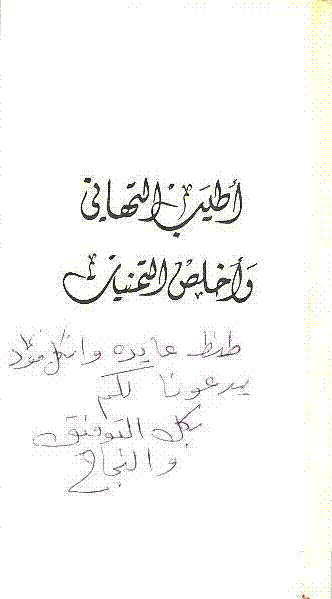 أطيب التهاني
وأخلص التمنيات
طنط عايده وانكل فؤاد
يدعونا لكم
بكل التوفيق
والنجاح